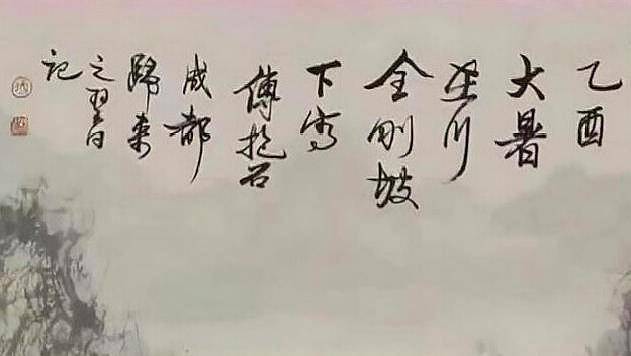 乙酉
大暑
川
全刚坡
下写
傅抱石
成都
歸来
之翌日
记